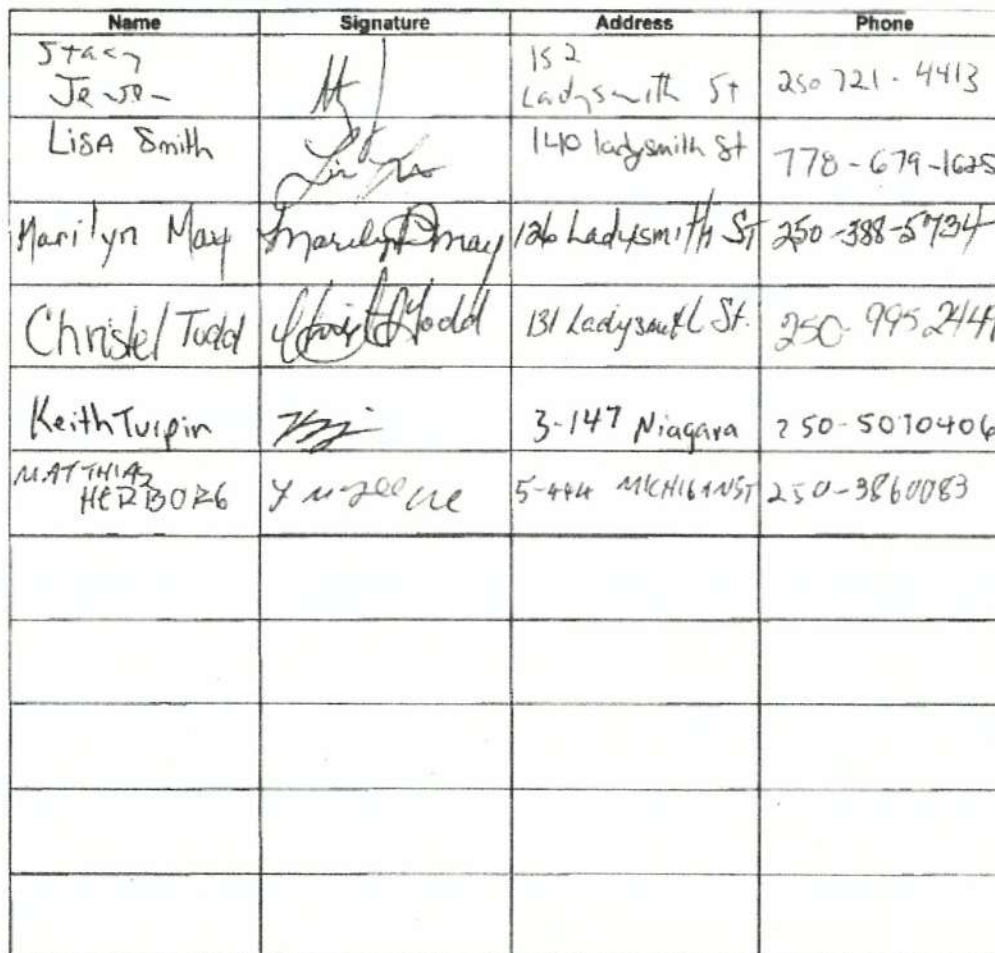 Name Signature Address Phone
Stacy
152
Ladysmith St 250 721-4413
Lisa Smith 140 ladysmith St 778-679-1625
Marilyn May Marilyn May 126 Ladysmith St 250-388-5734
Christel Todd Todd 131 Ladysmith St. 250-995-2441
Keith Turpin 3-147 Niagara 250-5070406
MATTHIAS
HERBORG 5-444 MICHIGAN ST 250-3860083